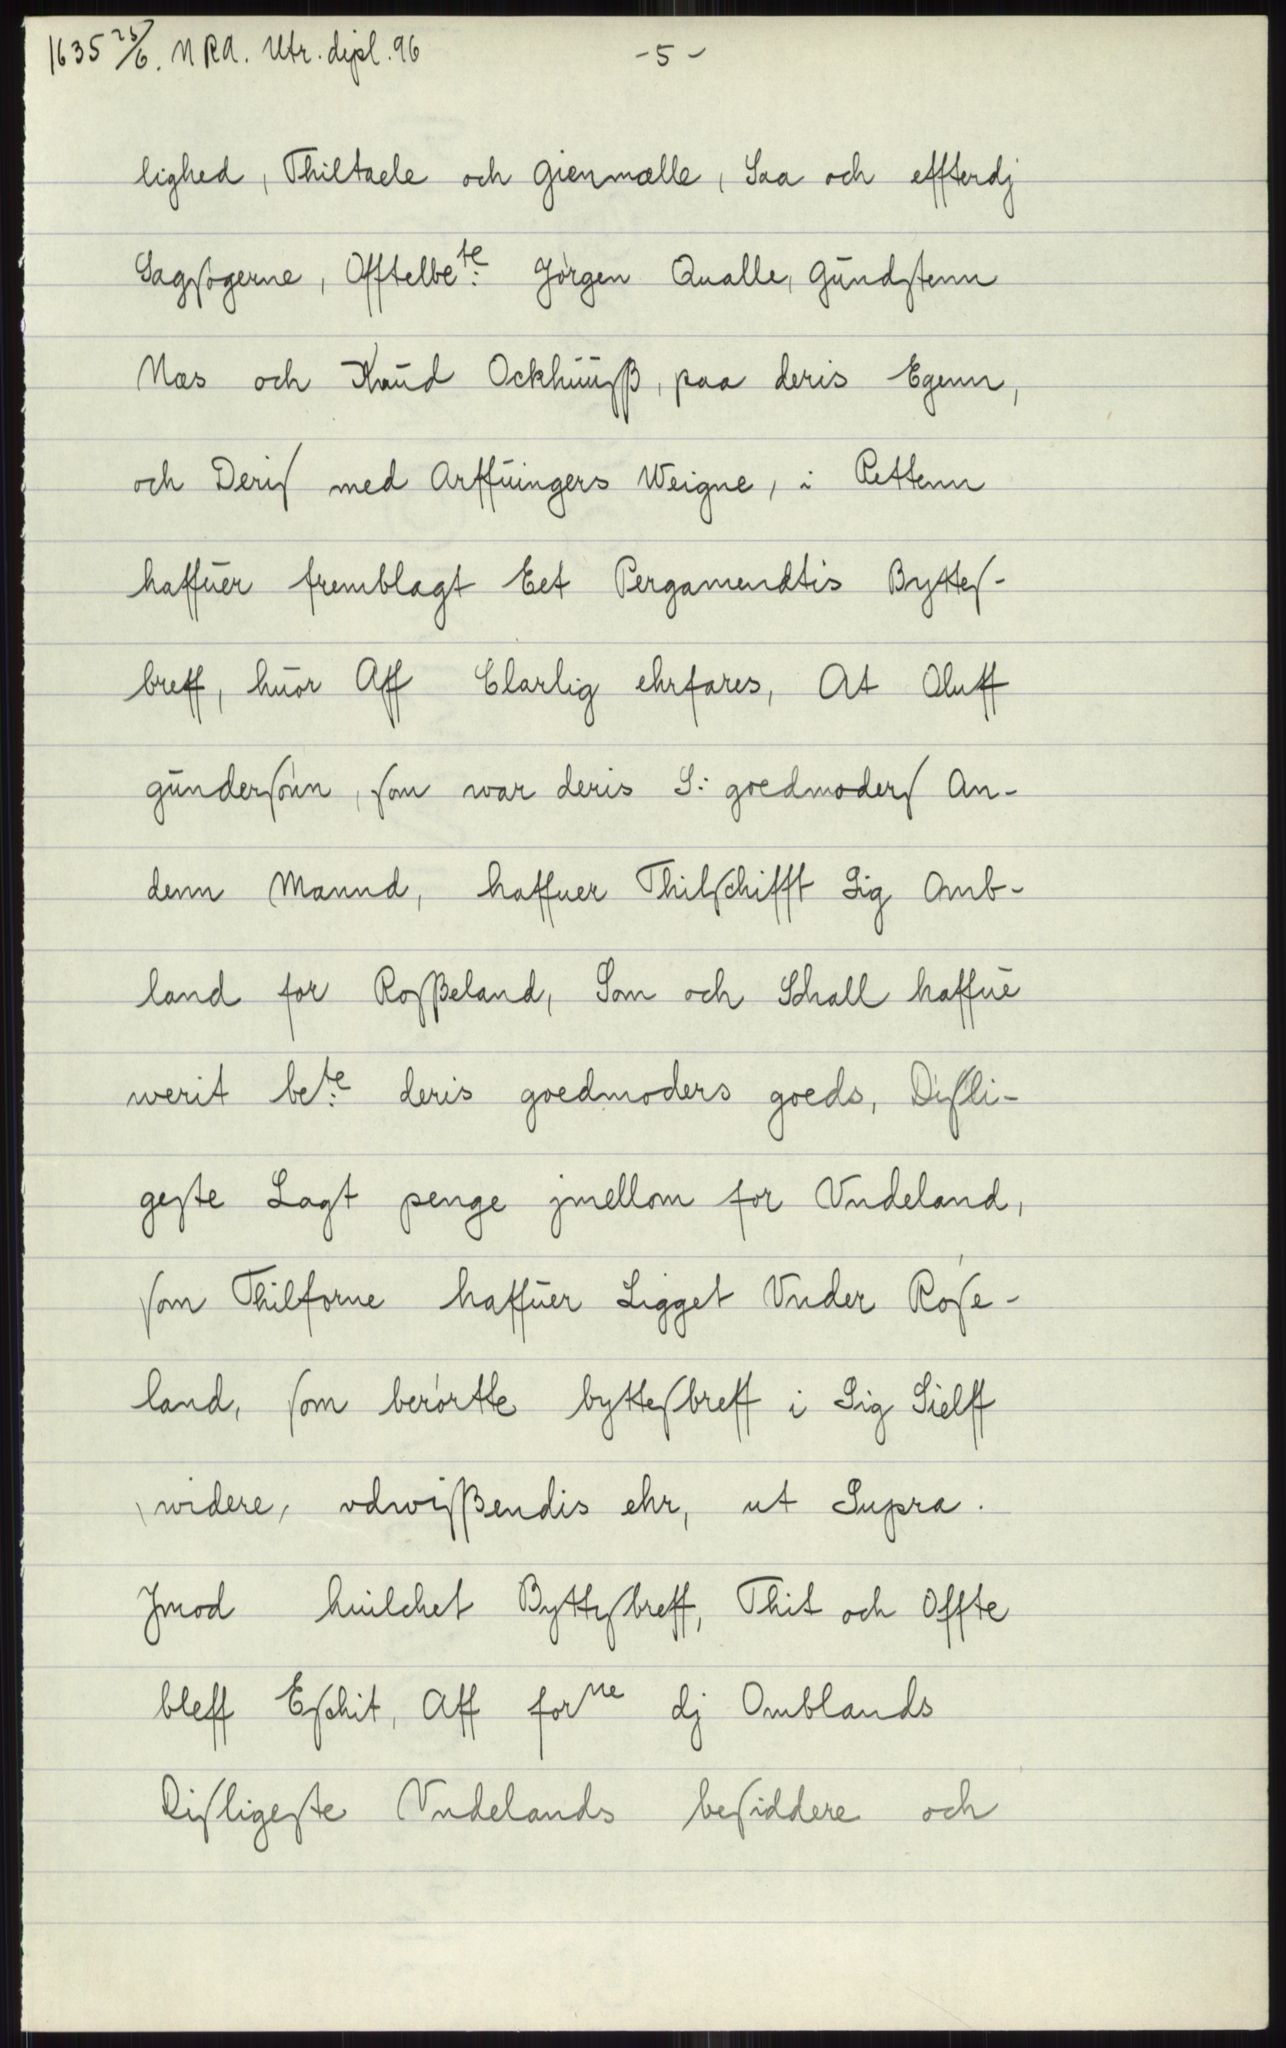 1635 25/6. NRA. Utr. dipl. 96 -5-
lighed, Thiltaele och gienmælle, Saa och effterdj
Sagſøgerne, Offtelbete: Jørgen Qualle, Gŭndſtenn
Næs och Knŭd Ockhŭŭſß, paa deris Egenn,
och Deriſ med Arffŭingers Weigne, i Rettenn
haffŭer fremblagt Eet Pergamendtis Bytteſ-
breff, hŭor Aff Clarlig ehrfares, At Oluff
gŭnderſønn, ſom war deris S: goedmoderſ An-
denn Mannd, haffuer Thilſchifft Sig Omb-
land for Roſßeland, Som och Schall haffŭe
werit bete: deris goedmoders goeds, Diſli-
geſte Lagt penge jmellom for Vndeland,
ſom Thilforne haffŭer Ligget Vnder Røſe-
land, ſom berørtte bytteſbreff i Sig Sielff
widere, vdwiſßendis ehr, ut Supra.
Jmod huilchet Bytteſbreff, Thit och Offte
bleff Eſchit, Aff forne dj Omblands
Diſligeſte Vndelands beſiddere och